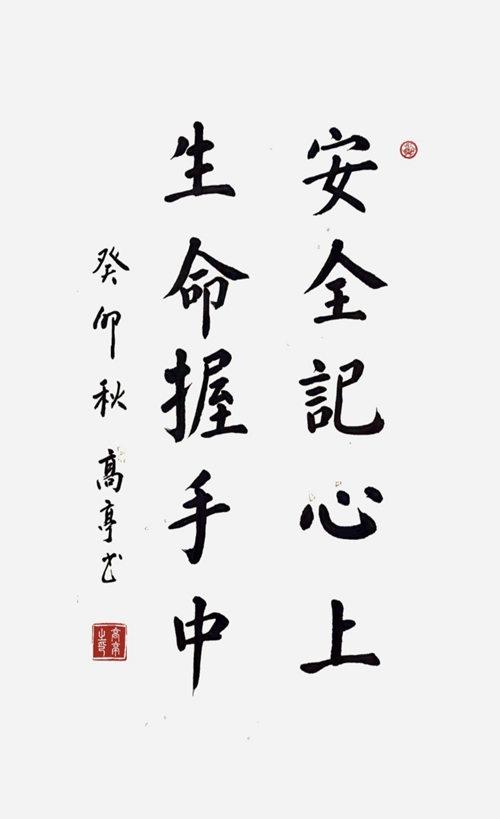 安全記心上
生命握手中
癸卯秋 高亭书
高亭之印